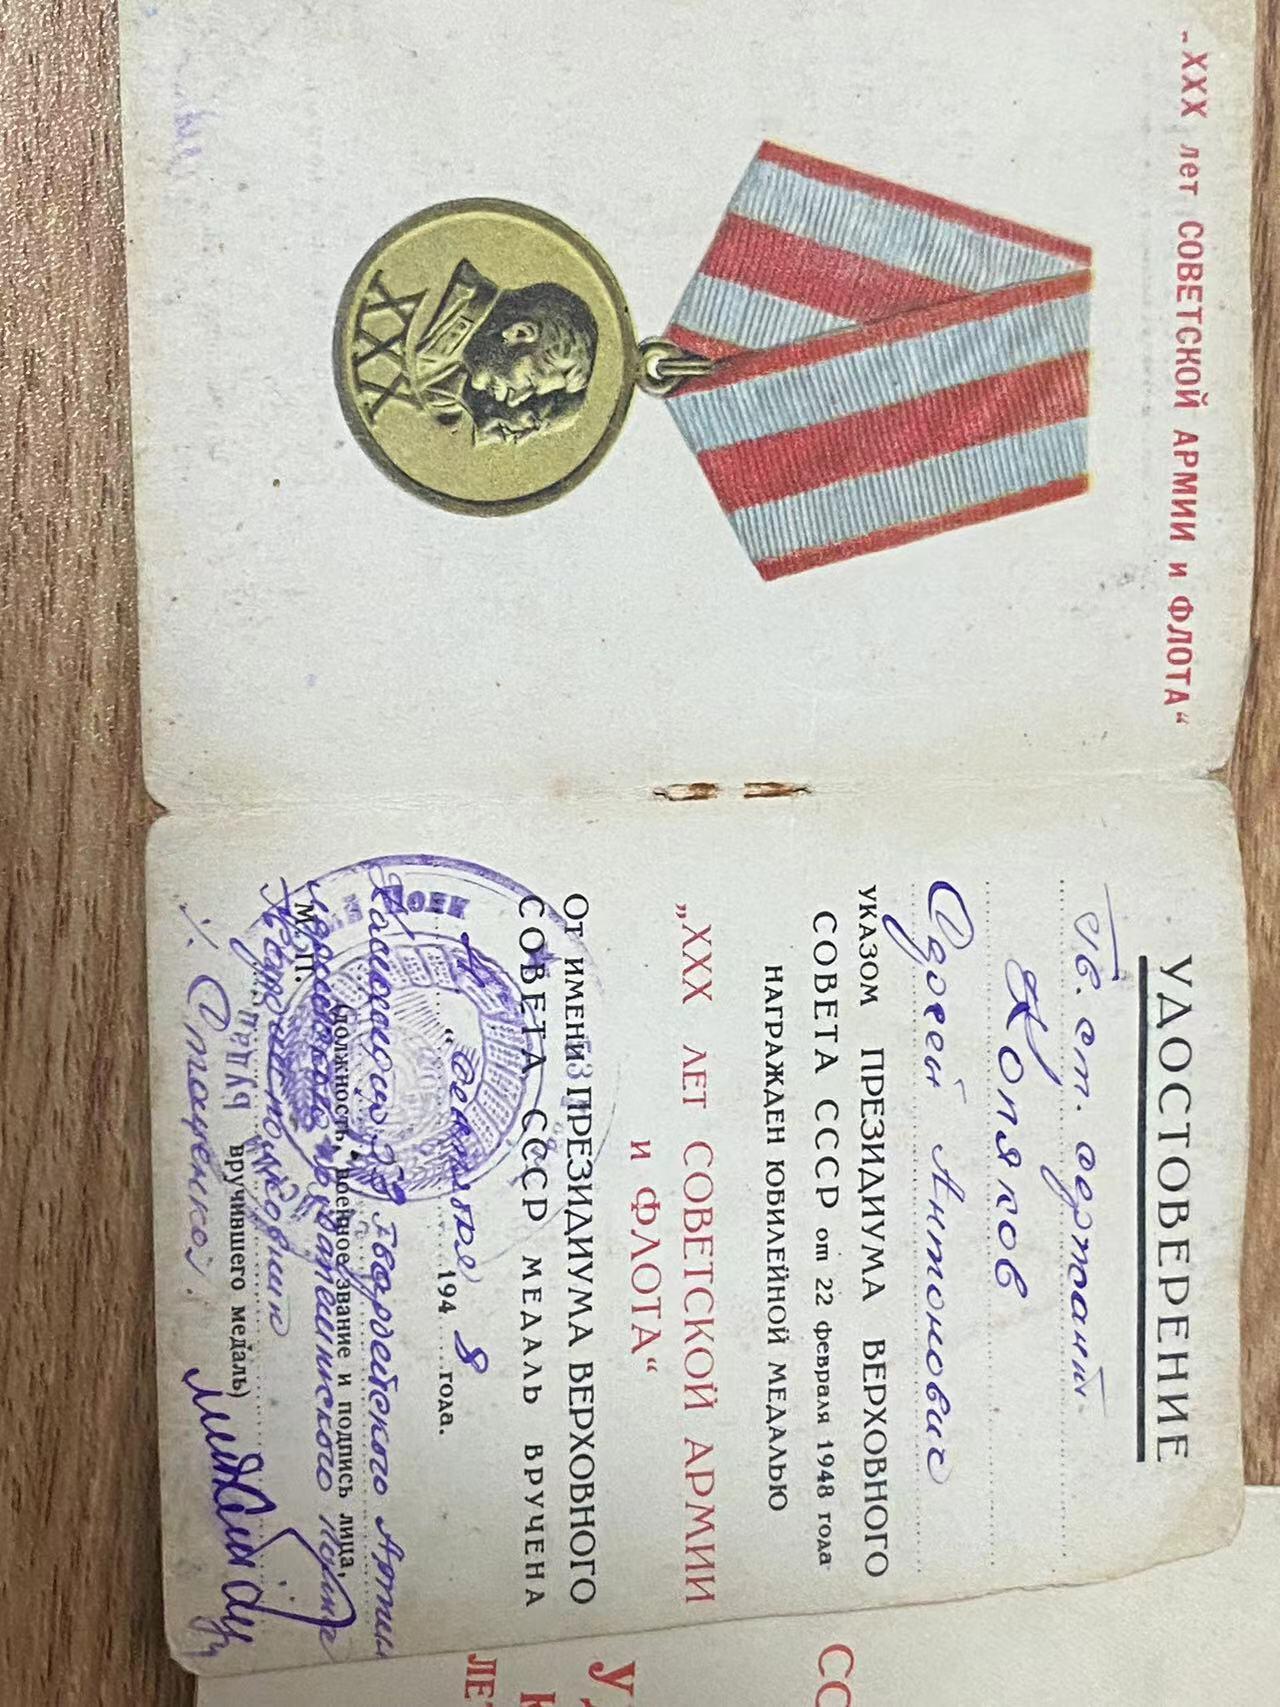 „XXX лет СОВЕТСКОЙ АРМИИ и ФЛОТА“
XXX
УДОСТОВЕРЕНИЕ
Гв. ст. сержант
Копяков
Сергей Антонович
УКАЗОМ ПРЕЗИДИУМА ВЕРХОВНОГО
СОВЕТА СССР от 22 февраля 1948 года
НАГРАЖДЕН ЮБИЛЕЙНОЙ МЕДАЛЬЮ
„XXX ЛЕТ СОВЕТСКОЙ АРМИИ
и ФЛОТА“
От ИМЕНИ ПРЕЗИДИУМА ВЕРХОВНОГО
СОВЕТА СССР МЕДАЛЬ ВРУЧЕНА
октября 1948 года.
Гвардейского
М. П. (должность, военное звание и подпись лица,
вручившего медаль)
СО
У
К
ЛЕТ